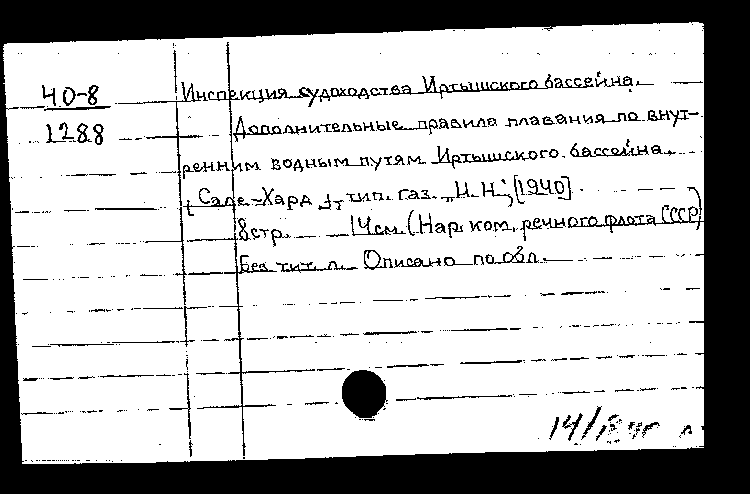 40-8
1288
Инспекция судоходства Иртышского бассейна.
Дополнительные правила плавания по внут-
ренним водным путям Иртышского бассейна.
[Сале-Хард], тип. газ. „Н. Н.", [1940].
8 стр. 14 см. (Нар. ком. речного флота СССР)
Без тит. л. Описано по обл.